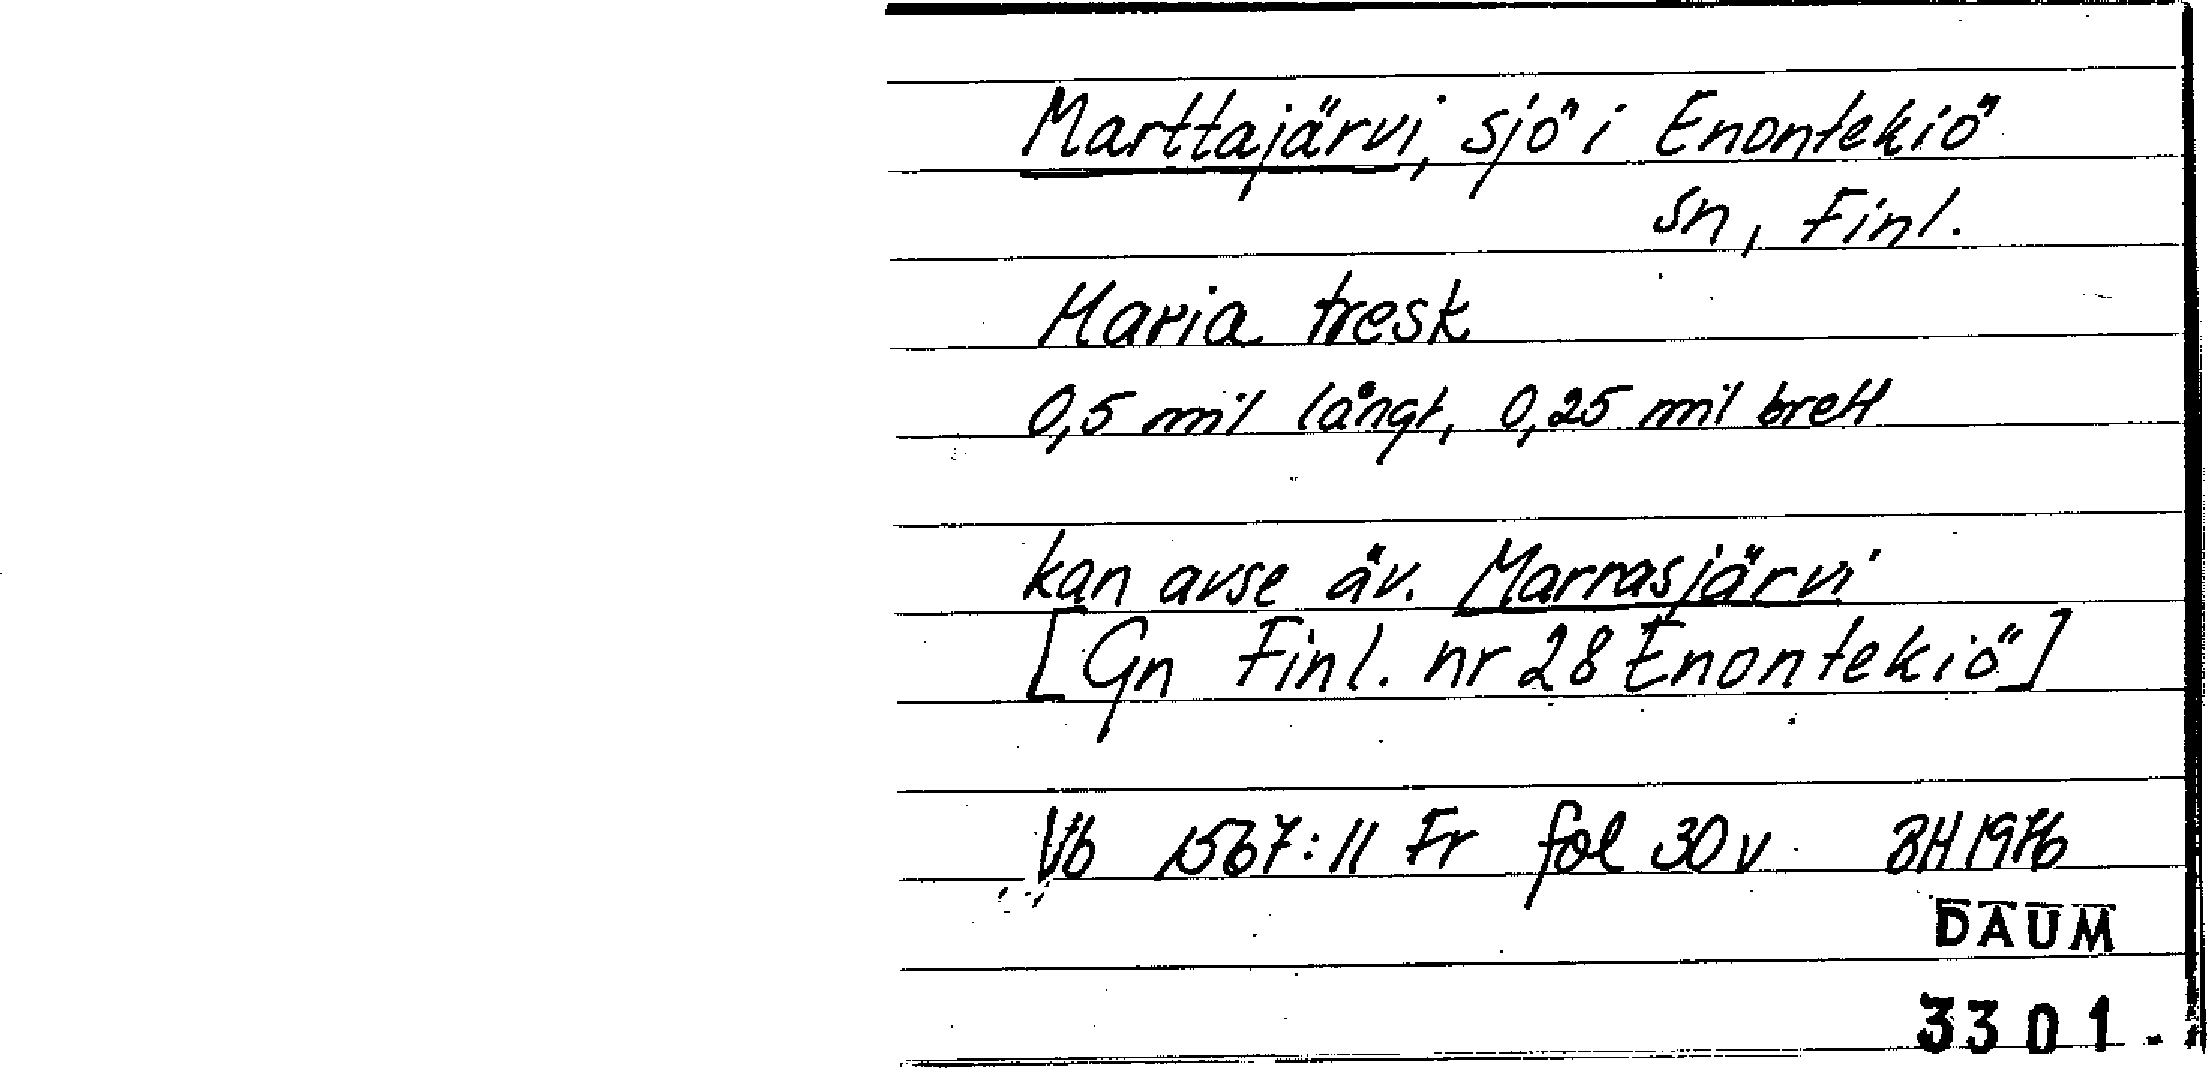 Marttajärvi, sjö i Enontekiö
sn, Finl.
Maria tresk
0,5 mil långt, 0,25 mil brett
kan avse äv. Marrasjärvi
[Gn Finl. nr 28 Enontekiö]
Vb 1567:11 Fr fol 30v BH 1976
DAUM
3301